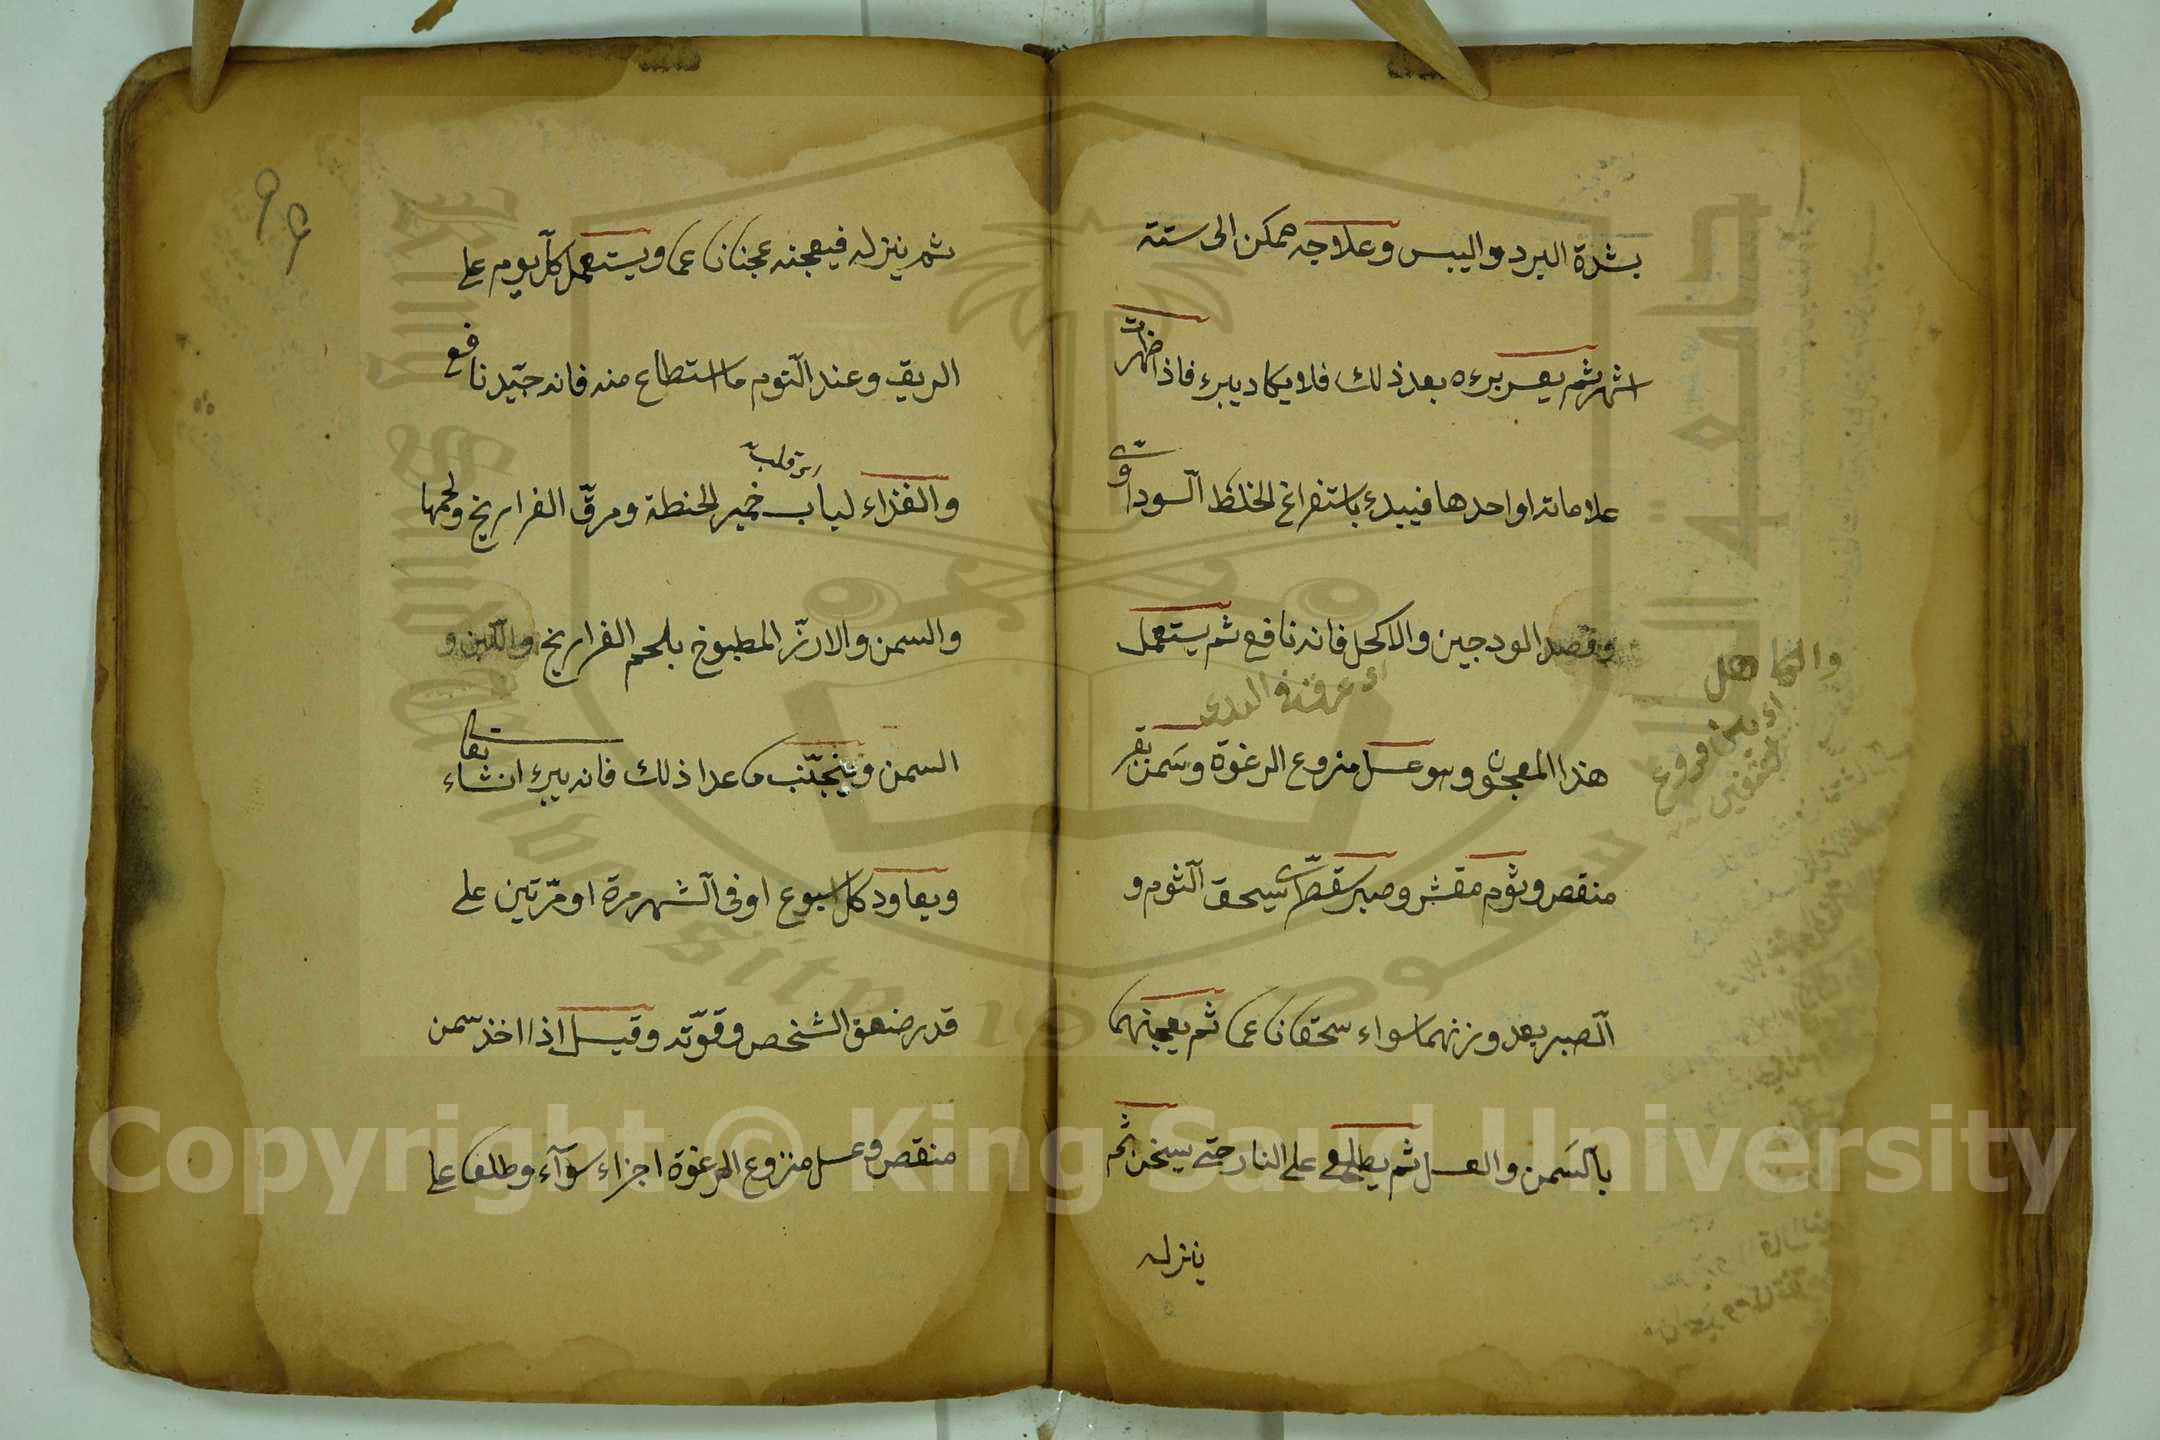 بشدة البرد واليبس وعلاجه ممكن الى ستة
اشهر ثم يعسر برءه بعد ذلك فلا يكاد يبرء فاذا ظهرت
علاماته او احدها فيبدء باستفراغ الخلط السوداوى
وفصد الودجين والاكحل فانه نافع ثم يستعمل
والكاهل
اى بين فروع
الكتفين
اى عرق فى اليدى
هذا المعجون وهو عسل منزوع الرغوة وسمن بقر
منقص وثوم مقشر وصبر سقطرى يسحق الثوم و
الصبر بعد وزنهما سواء سحقا ناعما ثم يعجنهما
بالسمن والعسل ثم يطلع على النار حتى يسخن ثم
ينزله
99
ثم ينزله فيعجنه عجنا ناعما ويستعمل كل يوم على
الريق وعند النوم ما استطاع منه فانه جيد نافع
اى قلب
والغذاء لباب خمير الحنطة ومرق الفراريخ ولحمها
والسمن والارز المطبوخ بلحم الفراريخ واللبن و
السمن ويتجنب ما عدا ذلك فانه يبرء ان شاء تعا
ويعاود كل اسبوع او فى الشهر مرة او مرتين على
قدر ضعف الشخص وقوته وقيل اذا اخذ سمن
منقص وعسل منزوع الرغوة اجزاء سوآء وطلفا عا
جامعة الملك سعود
King Saud University
1957
Copyright © King Saud University